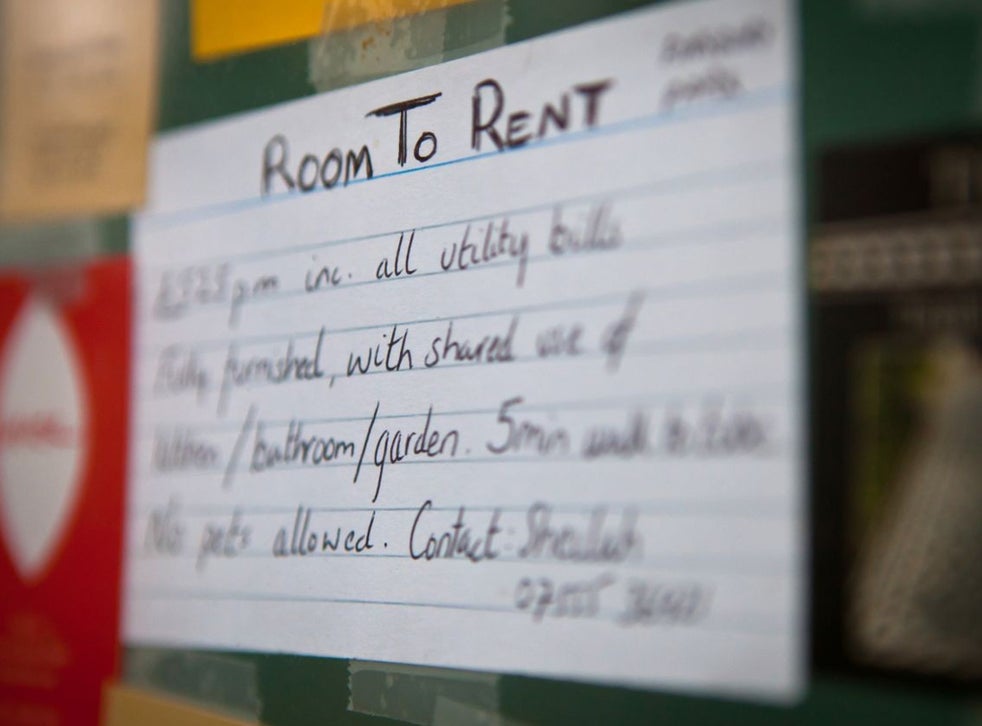 ROOM TO RENT
pm inc. all utility bills
Fully furnished, with shared use of
kitchen/bathroom/garden. 5min walk to
No pets allowed. Contact: Sheilah